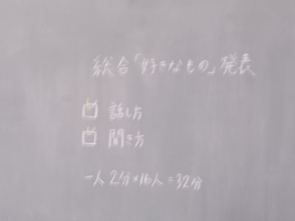 総合「好きなもの」発表
☑ 話し方
☑ 聞き方
一人 2分×16人=32分